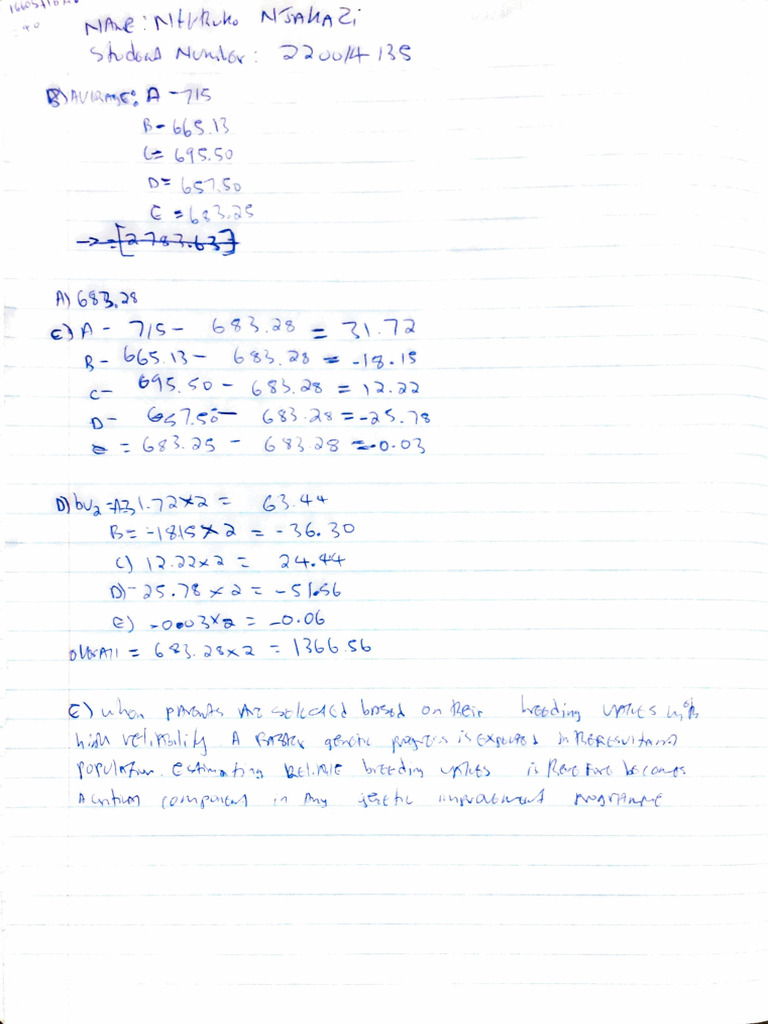 NAME: Nthutuko NJAHAZi
Student Number: 220014135
B) AVIRAGE: A - 715
B - 665.13
C = 695.50
D = 657.50
E = 683.25
-> = [2 783.63]
A) 683.28
C) A - 715 - 683.28 = 31.72
B - 665.13 - 683.28 = -18.15
C - 695.50 - 683.28 = 12.22
D - 657.50 - 683.28 = -25.78
E = 683.25 - 683.28 = -0.03
D) bv2 = A31.72x2 = 63.44
B = -1815 x 2 = -36.30
C) 12.22x2 = 24.44
D) -25.78 x 2 = -51.56
E) -0.003x2 = -0.06
OVERAll = 683.28x2 = 1366.56
E) when parents are selected based on their breeding values with
high reliability A faster genetic progress is expected in the resultant
population. Estimating RELIABLE breeding values is therefore becomes
A critical component in Any genetic improvement programme